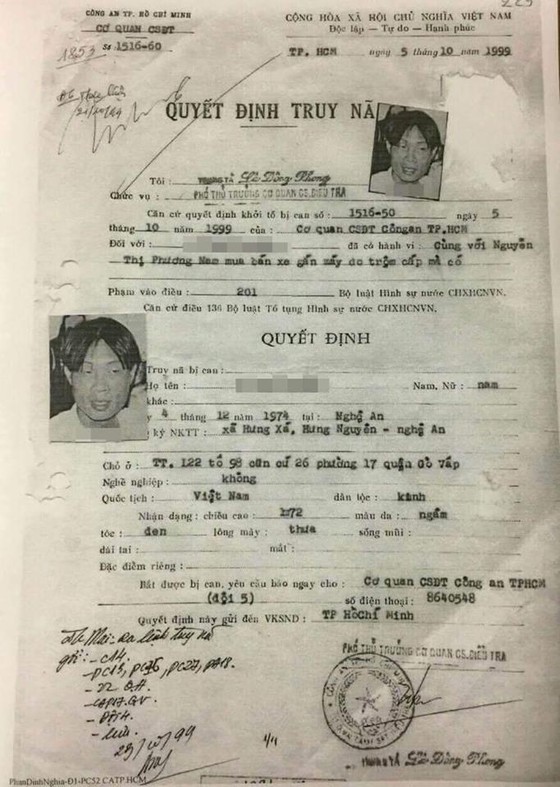 CÔNG AN TP. HỒ CHÍ MINH
CƠ QUAN CSĐT
Số 1516-60
1853
CỘNG HÒA XÃ HỘI CHỦ NGHĨA VIỆT NAM
Độc lập — Tự do — Hạnh phúc
TP. HCM ngày 5 tháng 10 năm 1999
QUYẾT ĐỊNH TRUY NÃ
Tôi : TRUNG TÁ Lê Đông Phong
Chức vụ : PHÓ THỦ TRƯỞNG CƠ QUAN CS.ĐIỀU TRA
Căn cứ quyết định khởi tố bị can số : 1516-50 ngày 5
tháng 10 năm 1999 của : Cơ quan CSĐT Côngan TP.HCM
Đối với : đã có hành vi : Cùng với Nguyễn
Thị Phương Nam mua bán xe gắn máy do trộm cấp mà có
Phạm vào điều : 201 Bộ luật Hình sự nước CHXHCNVN.
Căn cứ điều 136 Bộ luật Tố tụng Hình sự nước CHXHCNVN.
QUYẾT ĐỊNH
Truy nã bị can :
Họ tên : Nam, Nữ : nam
khác :
y 4 tháng 12 năm 1974 tại : Nghệ An
ký NKTT : xã Hưng Xá, Hưng Nguyên - nghệ An
Chỗ ở : TT. 122 tổ 98 căn cứ 26 phường 17 quận Gò Vấp
Nghề nghiệp : không
Quốc tịch : Việt Nam dân tộc : kinh
Nhận dạng : chiều cao : 1m72 màu da : ngăm
tóc : đen lông mày : thưa sống mũi :
dái tai : mắt :
Đặc điểm riêng :
Bắt được bị can, yêu cầu báo ngay cho : Cơ quan CSĐT Công an TPHCM
(đội 5) số điện thoại : 8640548
Quyết định này gửi đến VKSND : TP HồChí Minh
PHÓ THỦ TRƯỞNG CƠ QUAN CS.ĐIỀU TRA
TRUNG TÁ Lê Đông Phong
PhanDinhNghia-D1-PC52 CATP.HCM